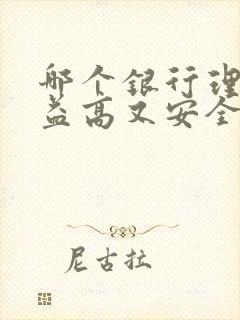 那个银行理
益高又安全
尼古拉